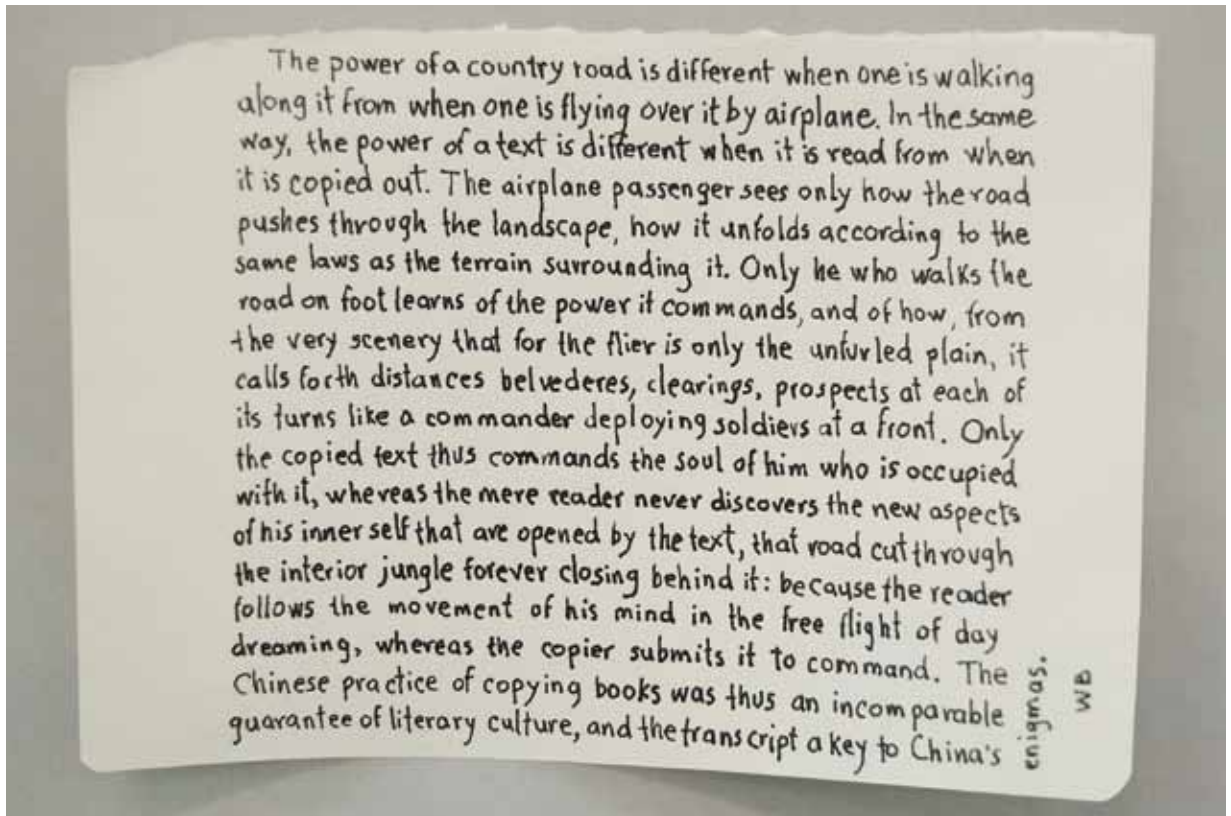 The power of a country road is different when one is walking
along it from when one is flying over it by airplane. In the same
way, the power of a text is different when it is read from when
it is copied out. The airplane passenger sees only how the road
pushes through the landscape, how it unfolds according to the
same laws as the terrain surrounding it. Only he who walks the
road on foot learns of the power it commands, and of how, from
the very scenery that for the flier is only the unfurled plain, it
calls forth distances belvederes, clearings, prospects at each of
its turns like a commander deploying soldiers at a front. Only
the copied text thus commands the soul of him who is occupied
with it, whereas the mere reader never discovers the new aspects
of his inner self that are opened by the text, that road cut through
the interior jungle forever closing behind it: because the reader
follows the movement of his mind in the free flight of day
dreaming, whereas the copier submits it to command. The
Chinese practice of copying books was thus an incomparable
guarantee of literary culture, and the transcript a key to China's
enigmas.
WB